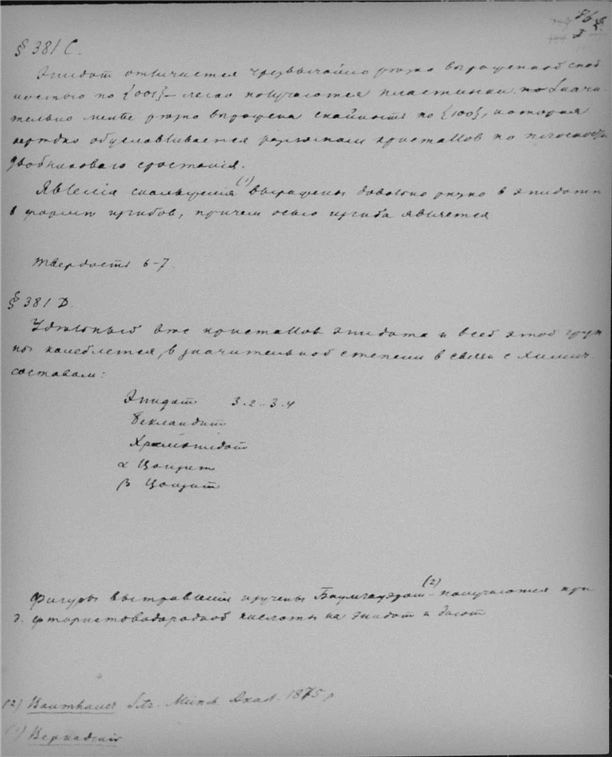 56
§ 381 C.
Эпидот отличается чрезвычайно резко выраженной спай
ностью по {001} – легко получаются пластинки. по Значи
тельно менее резко выражена спайность по {100}, которая
нередко обуславливается кристаллов по плоскости
двойниковаго сростанія.
Явленія скольженія (1) выражены довольно редко в эпидоте
в форме изгибов, причем осью изгиба является
Твердость 6–7.
§ 381 D.
Удельный вес кристаллов эпидота и всей этой груп
пы колеблется, в значительной степени в связи с химич.
составом:
Эпидот 3.2–3.4
Бекландит
Хромэпидот
α Цоизит
β Цоизит
Фигуры вытравленія изучены Баумгауэром (2) – получаются при
д. фтористоводородной кислоты на эпидот и дают
(2) Baumhauer Мюнх. Акад. 1875 г
(1) Вернадскій